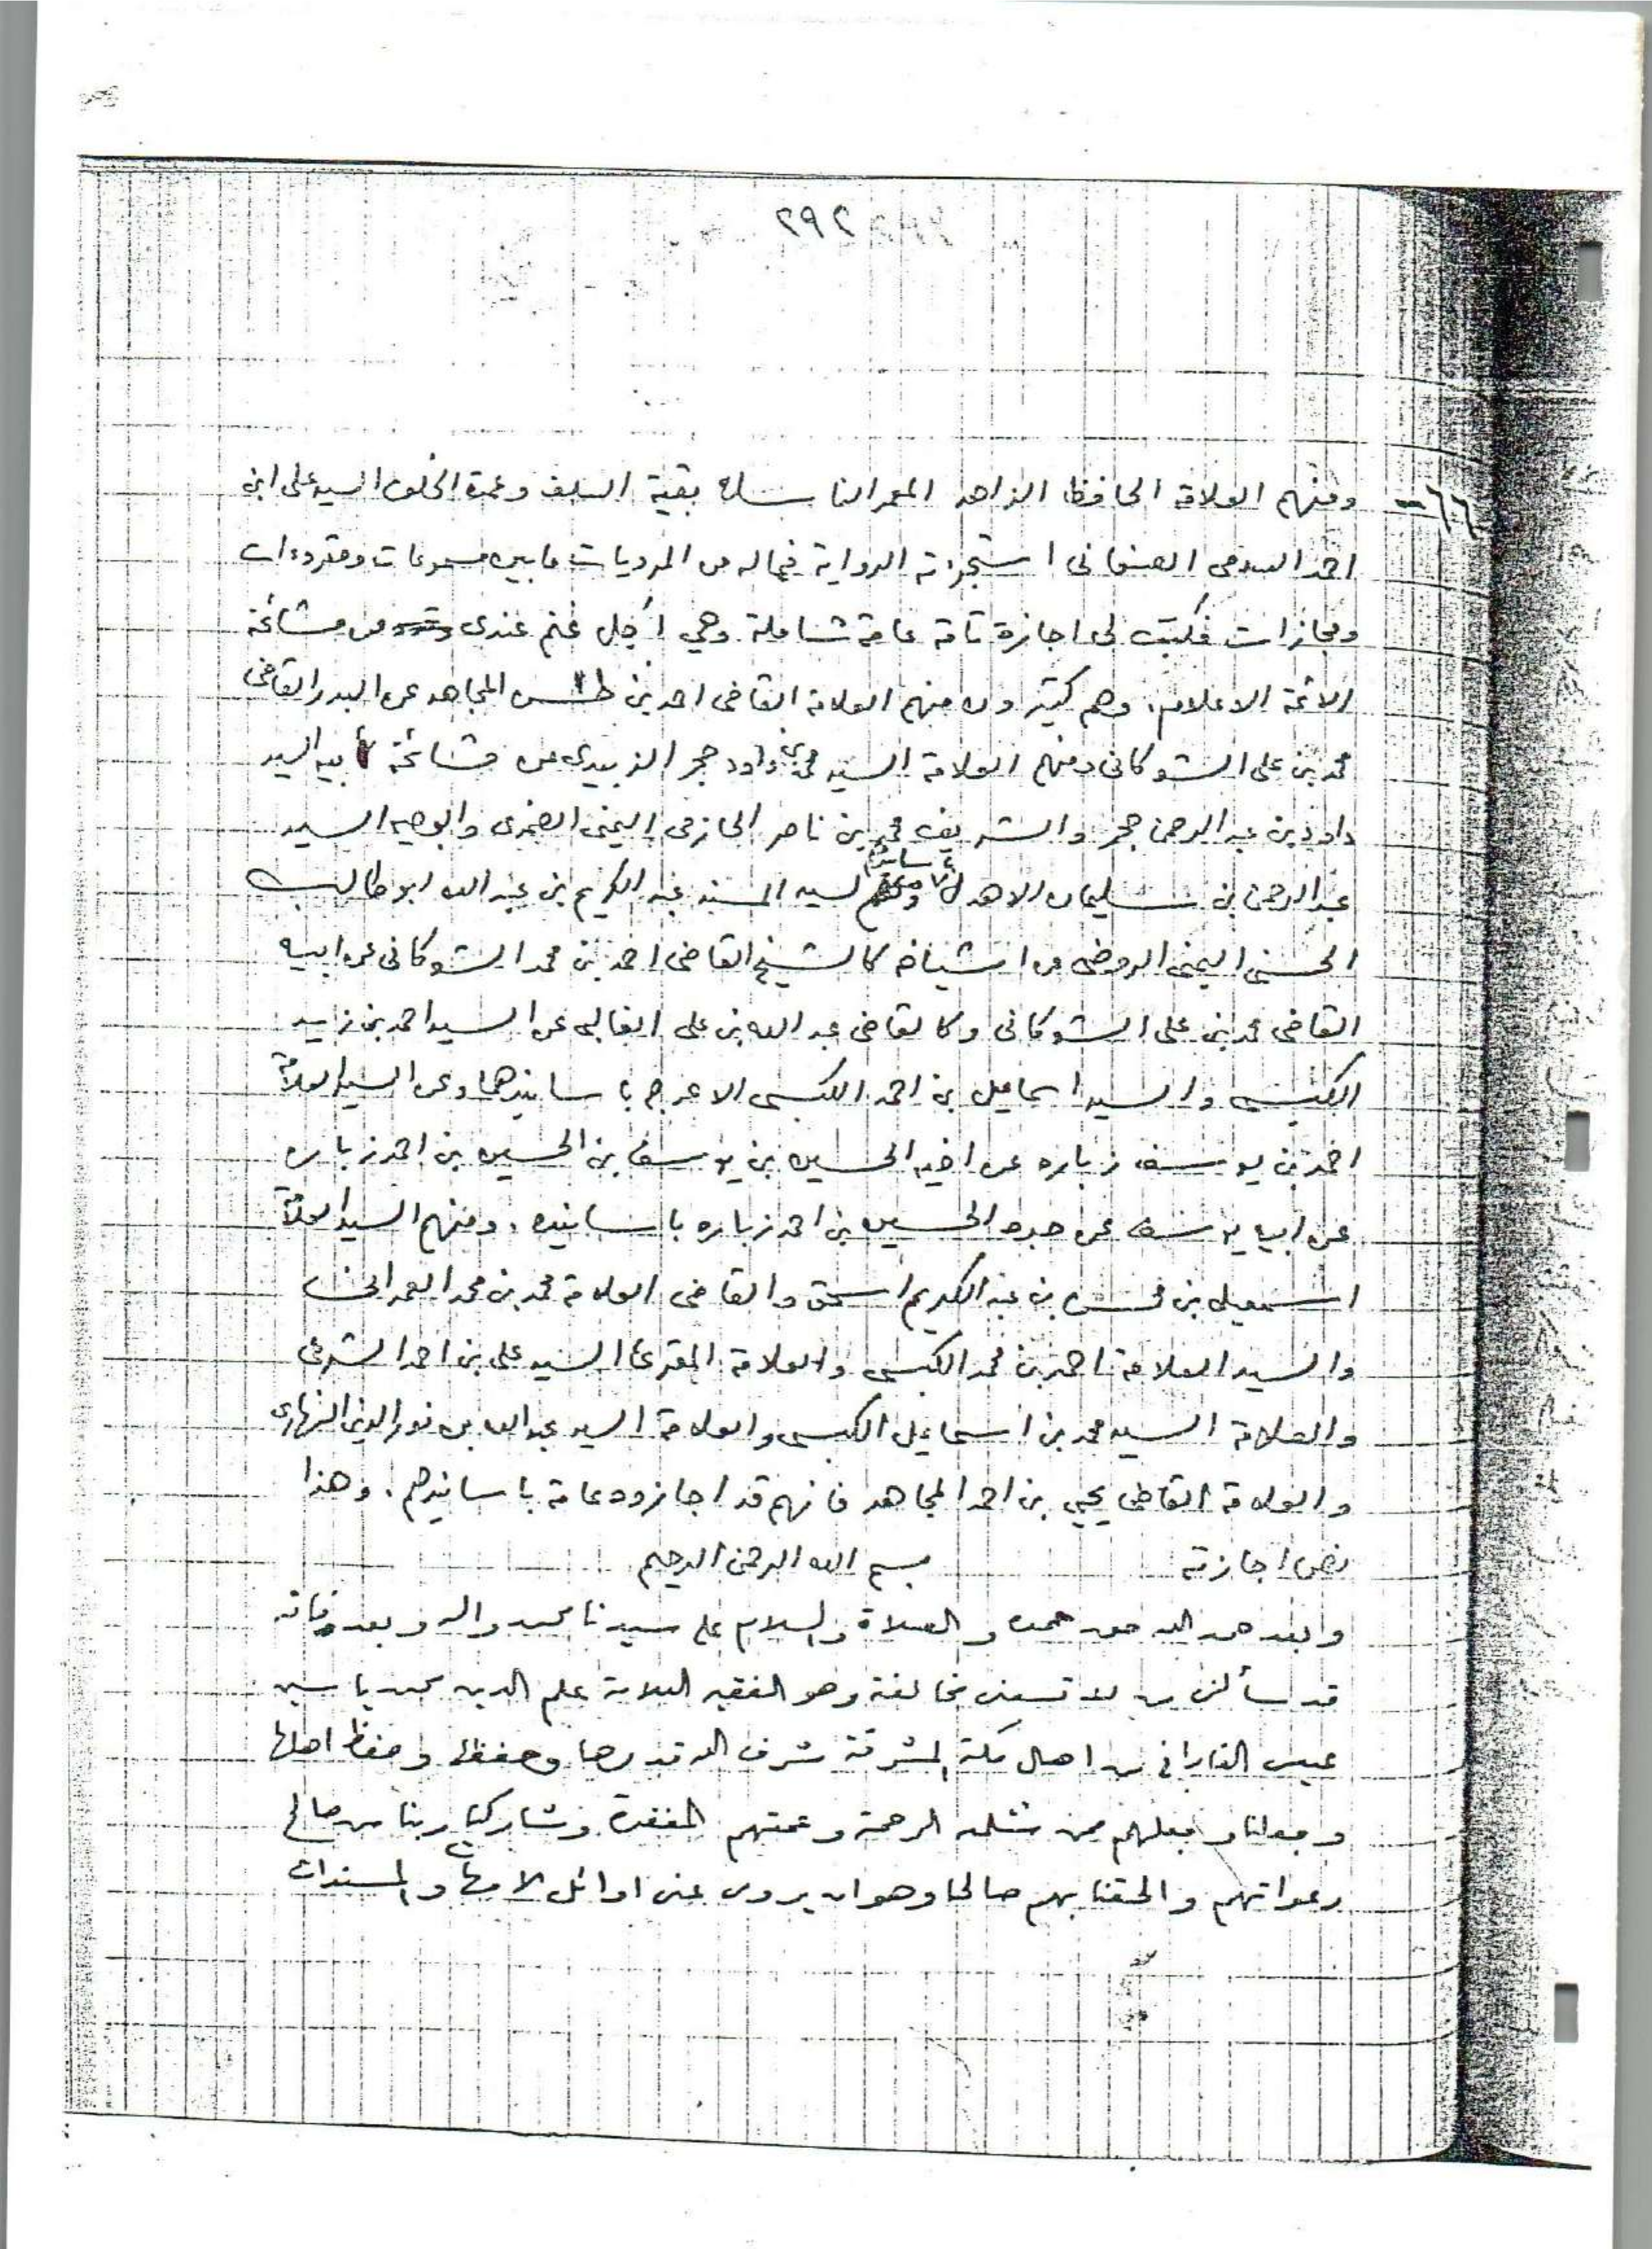 ٢٩٢
٦٦- ومنهم العلامة الحافظ الزاهد المعمر الناسك بقية السلف وعمدة الخلف السيد على ابن
احمد السدمى الصنعانى استجزته الرواية فيما له من المرويات ما بين مسموعات ومقروءات
ومجازات فكتب لى اجازة تامة عامة شاملة وهي أجل غنم عندى من مشائخه
الائمة الاعلام. وهم كثيرون منهم العلامة القاضى احمد بن المجاهد عن البدر القاضى
محمد بن على الشوكانى ومنهم العلامة السيد محمد بن داود حجر الزبيدى عن مشائخه أبيه السيد
داود بن عبد الرحمن حجر والشريف محمد بن ناصر الحازمى اليمنى الضمدى والوجيه السيد
عبد الرحمن بن سليمان الاهدل ومنهم السيد المسند عبد الكريم بن عبد الله ابو طالب
الحسنى اليمنى الروضى من اشياخه كالشيخ القاضى احمد بن محمد الشوكانى عن ابيه
القاضى محمد بن على الشوكانى وكالقاضى عبد الله بن على الغالبى عن السيد احمد بن زيد
الكبسى والسيد اسماعيل بن احمد الكبسى الاعرج باسانيدهما وعن السيد العلامة
احمد بن يوسف زباره عن اخيه الحسين بن يوسف بن الحسين بن احمد زباره
عن ابيه يوسف عن جده الحسين بن احمد زباره باسانيده. ومنهم السيد العلامة
اسمعيل بن محسن بن عبد الكريم اسحق والقاضى العلامة محمد بن محمد العمرانى
والسيد العلامة احمد بن محمد الكبسى والعلامة المقرئ السيد على بن احمد الشرفى
والعلامة السيد محمد بن اسماعيل الكبسى والعلامة السيد عبد الله بن نور الدين النهارى
والعلامة القاضى يحيى بن احمد المجاهد فانهم قد اجازوه عامة باسانيدهم. وهذا
نص اجازته بسم الله الرحمن الرحيم
وبعد حمد الله حق حمده والصلاة والسلام على سيدنا محمد واله وبعد فانه
قد سألنى من لا تسعنى مخالفته وهو الفقيه العلامة علم الدين محمد ياسين
عيسى الفادانى من اهل مكة المشرفة شرف الله قدرها وحفظها وحفظ اهلها
وجعلنا وجعلهم ممن شملته الرحمة وعمتهم المغفرة وشاركنا ربنا من صالح
دعواتهم والحقنا بهم صالحا وهو ان يروى عنى اوائل الامهات والمسندات